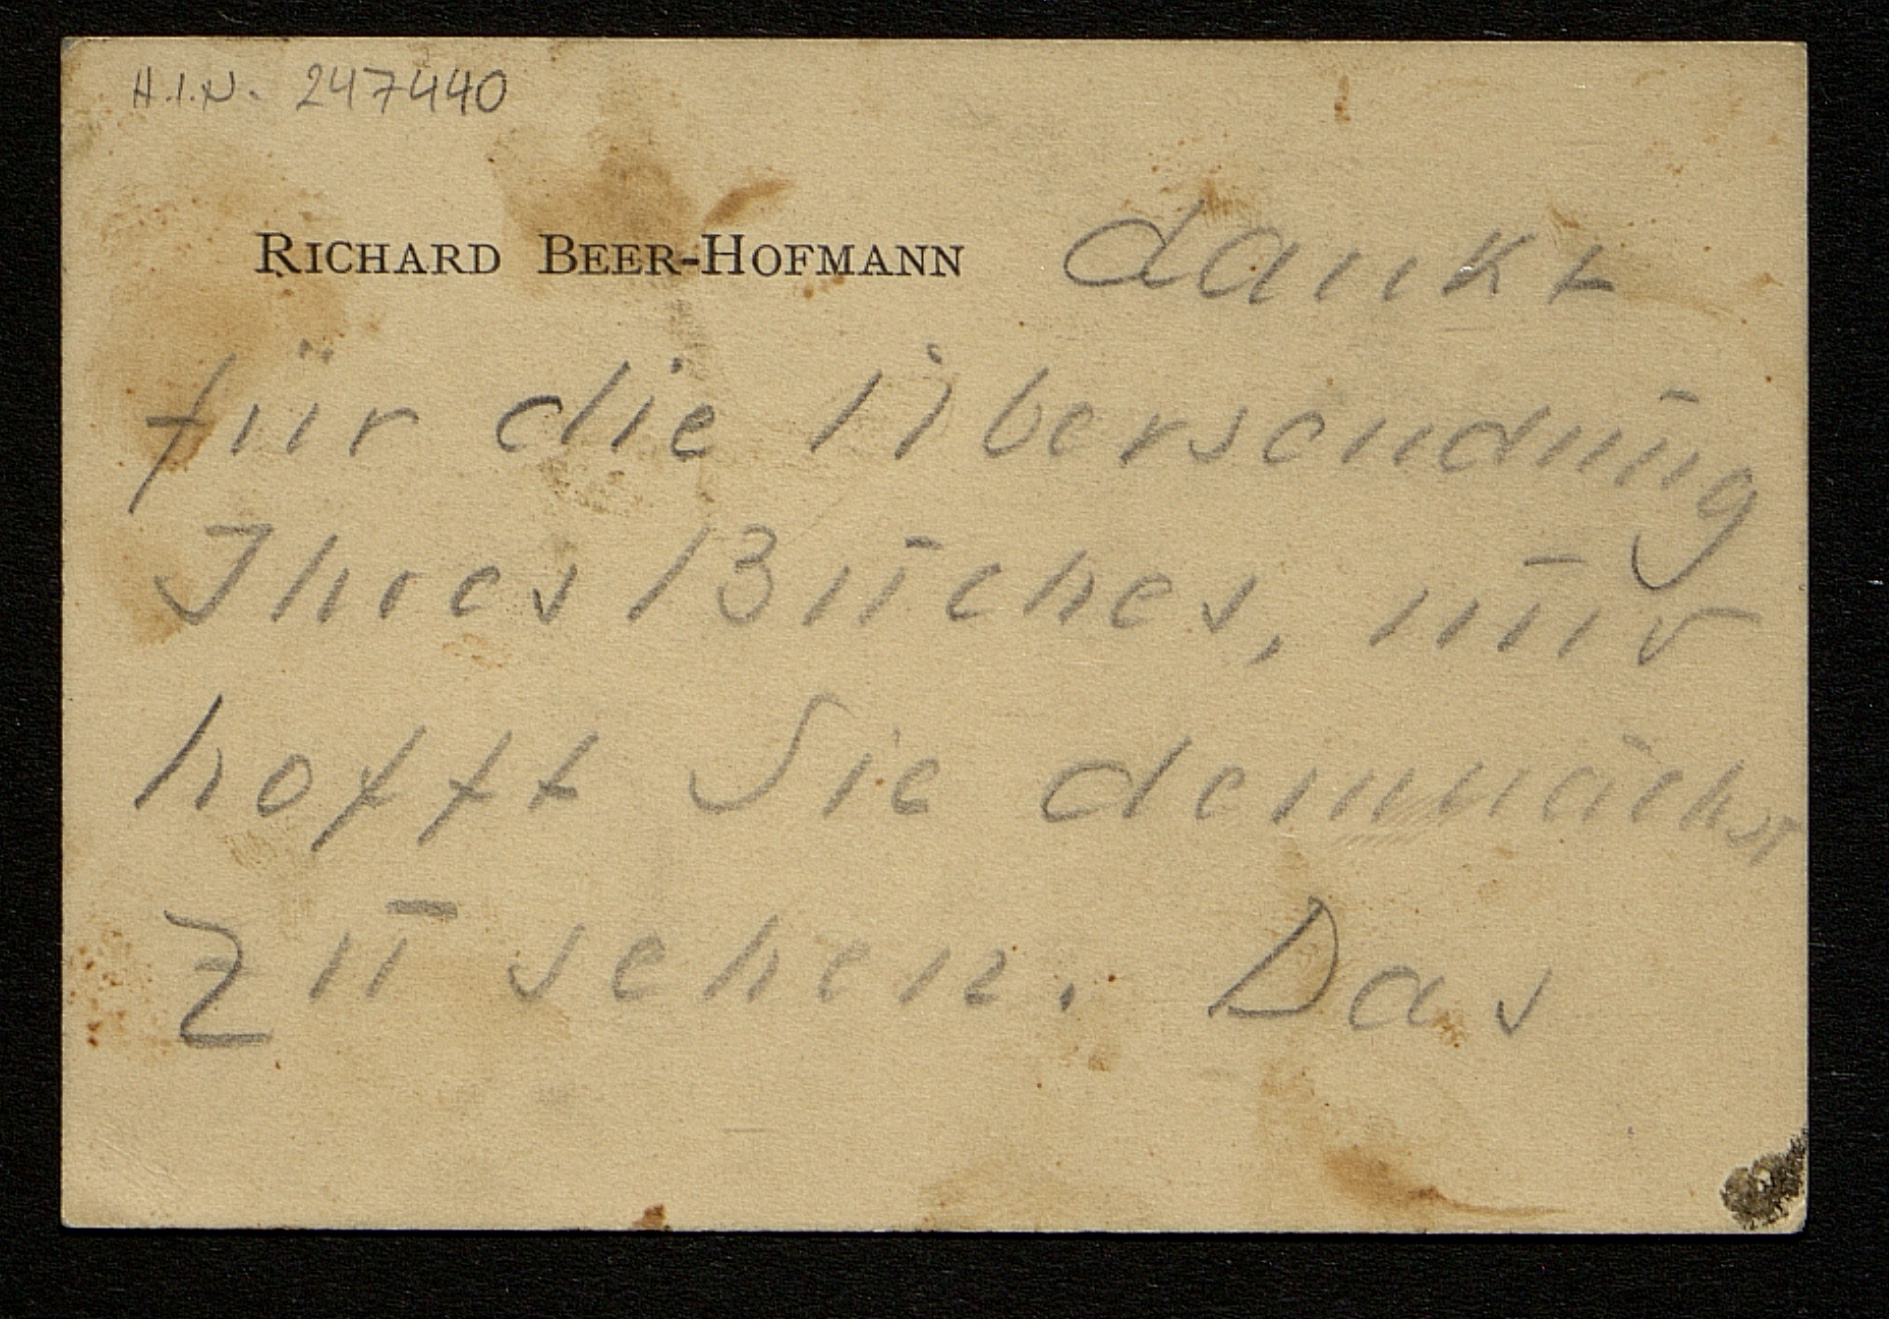 H.I.N. 247440
RICHARD BEER-HOFMANN dankt
für die Übersendung
Ihres Buches, nur
hofft Sie demnächst
zu sehen. Das